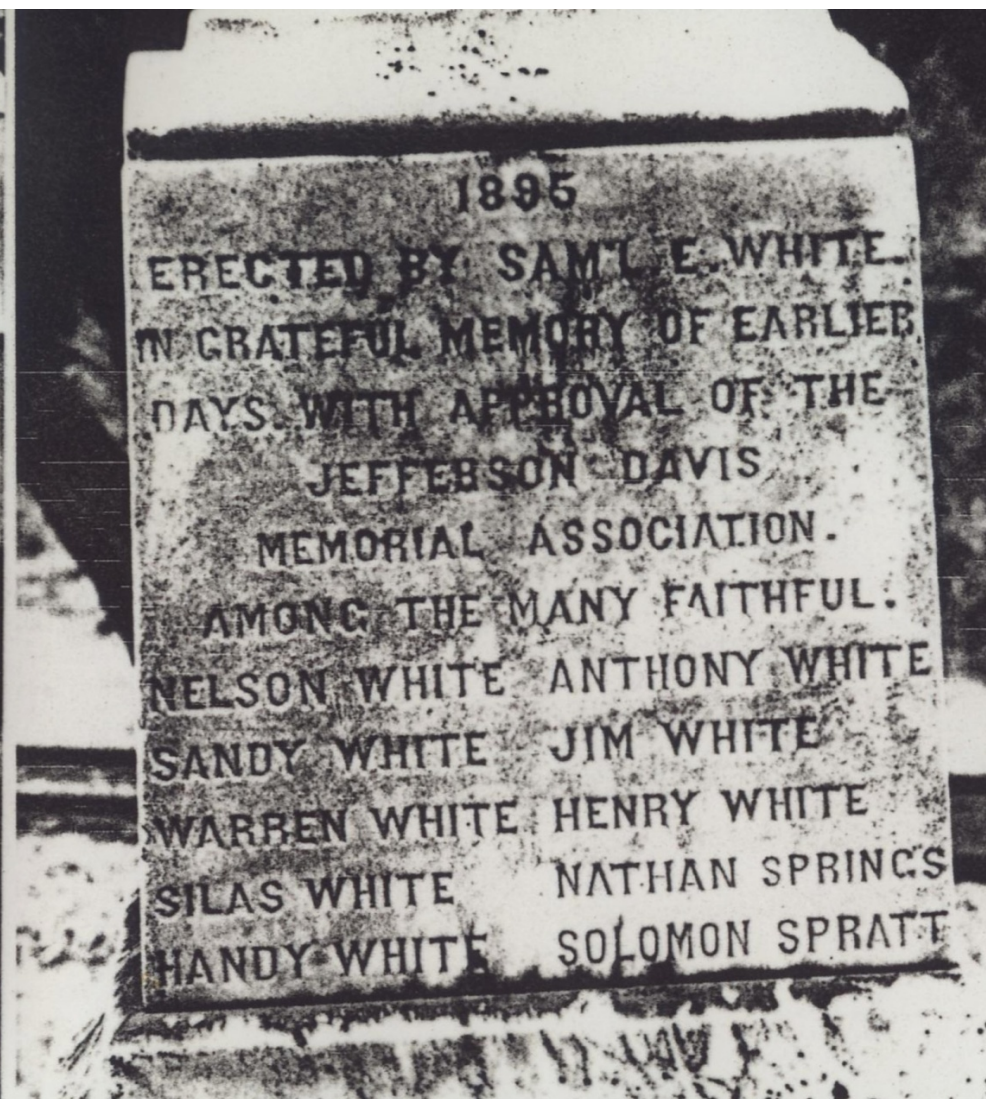 1895
ERECTED BY SAM'L E. WHITE.
IN GRATEFUL MEMORY OF EARLIER
DAYS. WITH APPROVAL OF THE
JEFFERSON DAVIS
MEMORIAL ASSOCIATION.
AMONG THE MANY FAITHFUL.
NELSON WHITE ANTHONY WHITE
SANDY WHITE JIM WHITE
WARREN WHITE HENRY WHITE
SILAS WHITE NATHAN SPRINGS
HANDY WHITE SOLOMON SPRATT